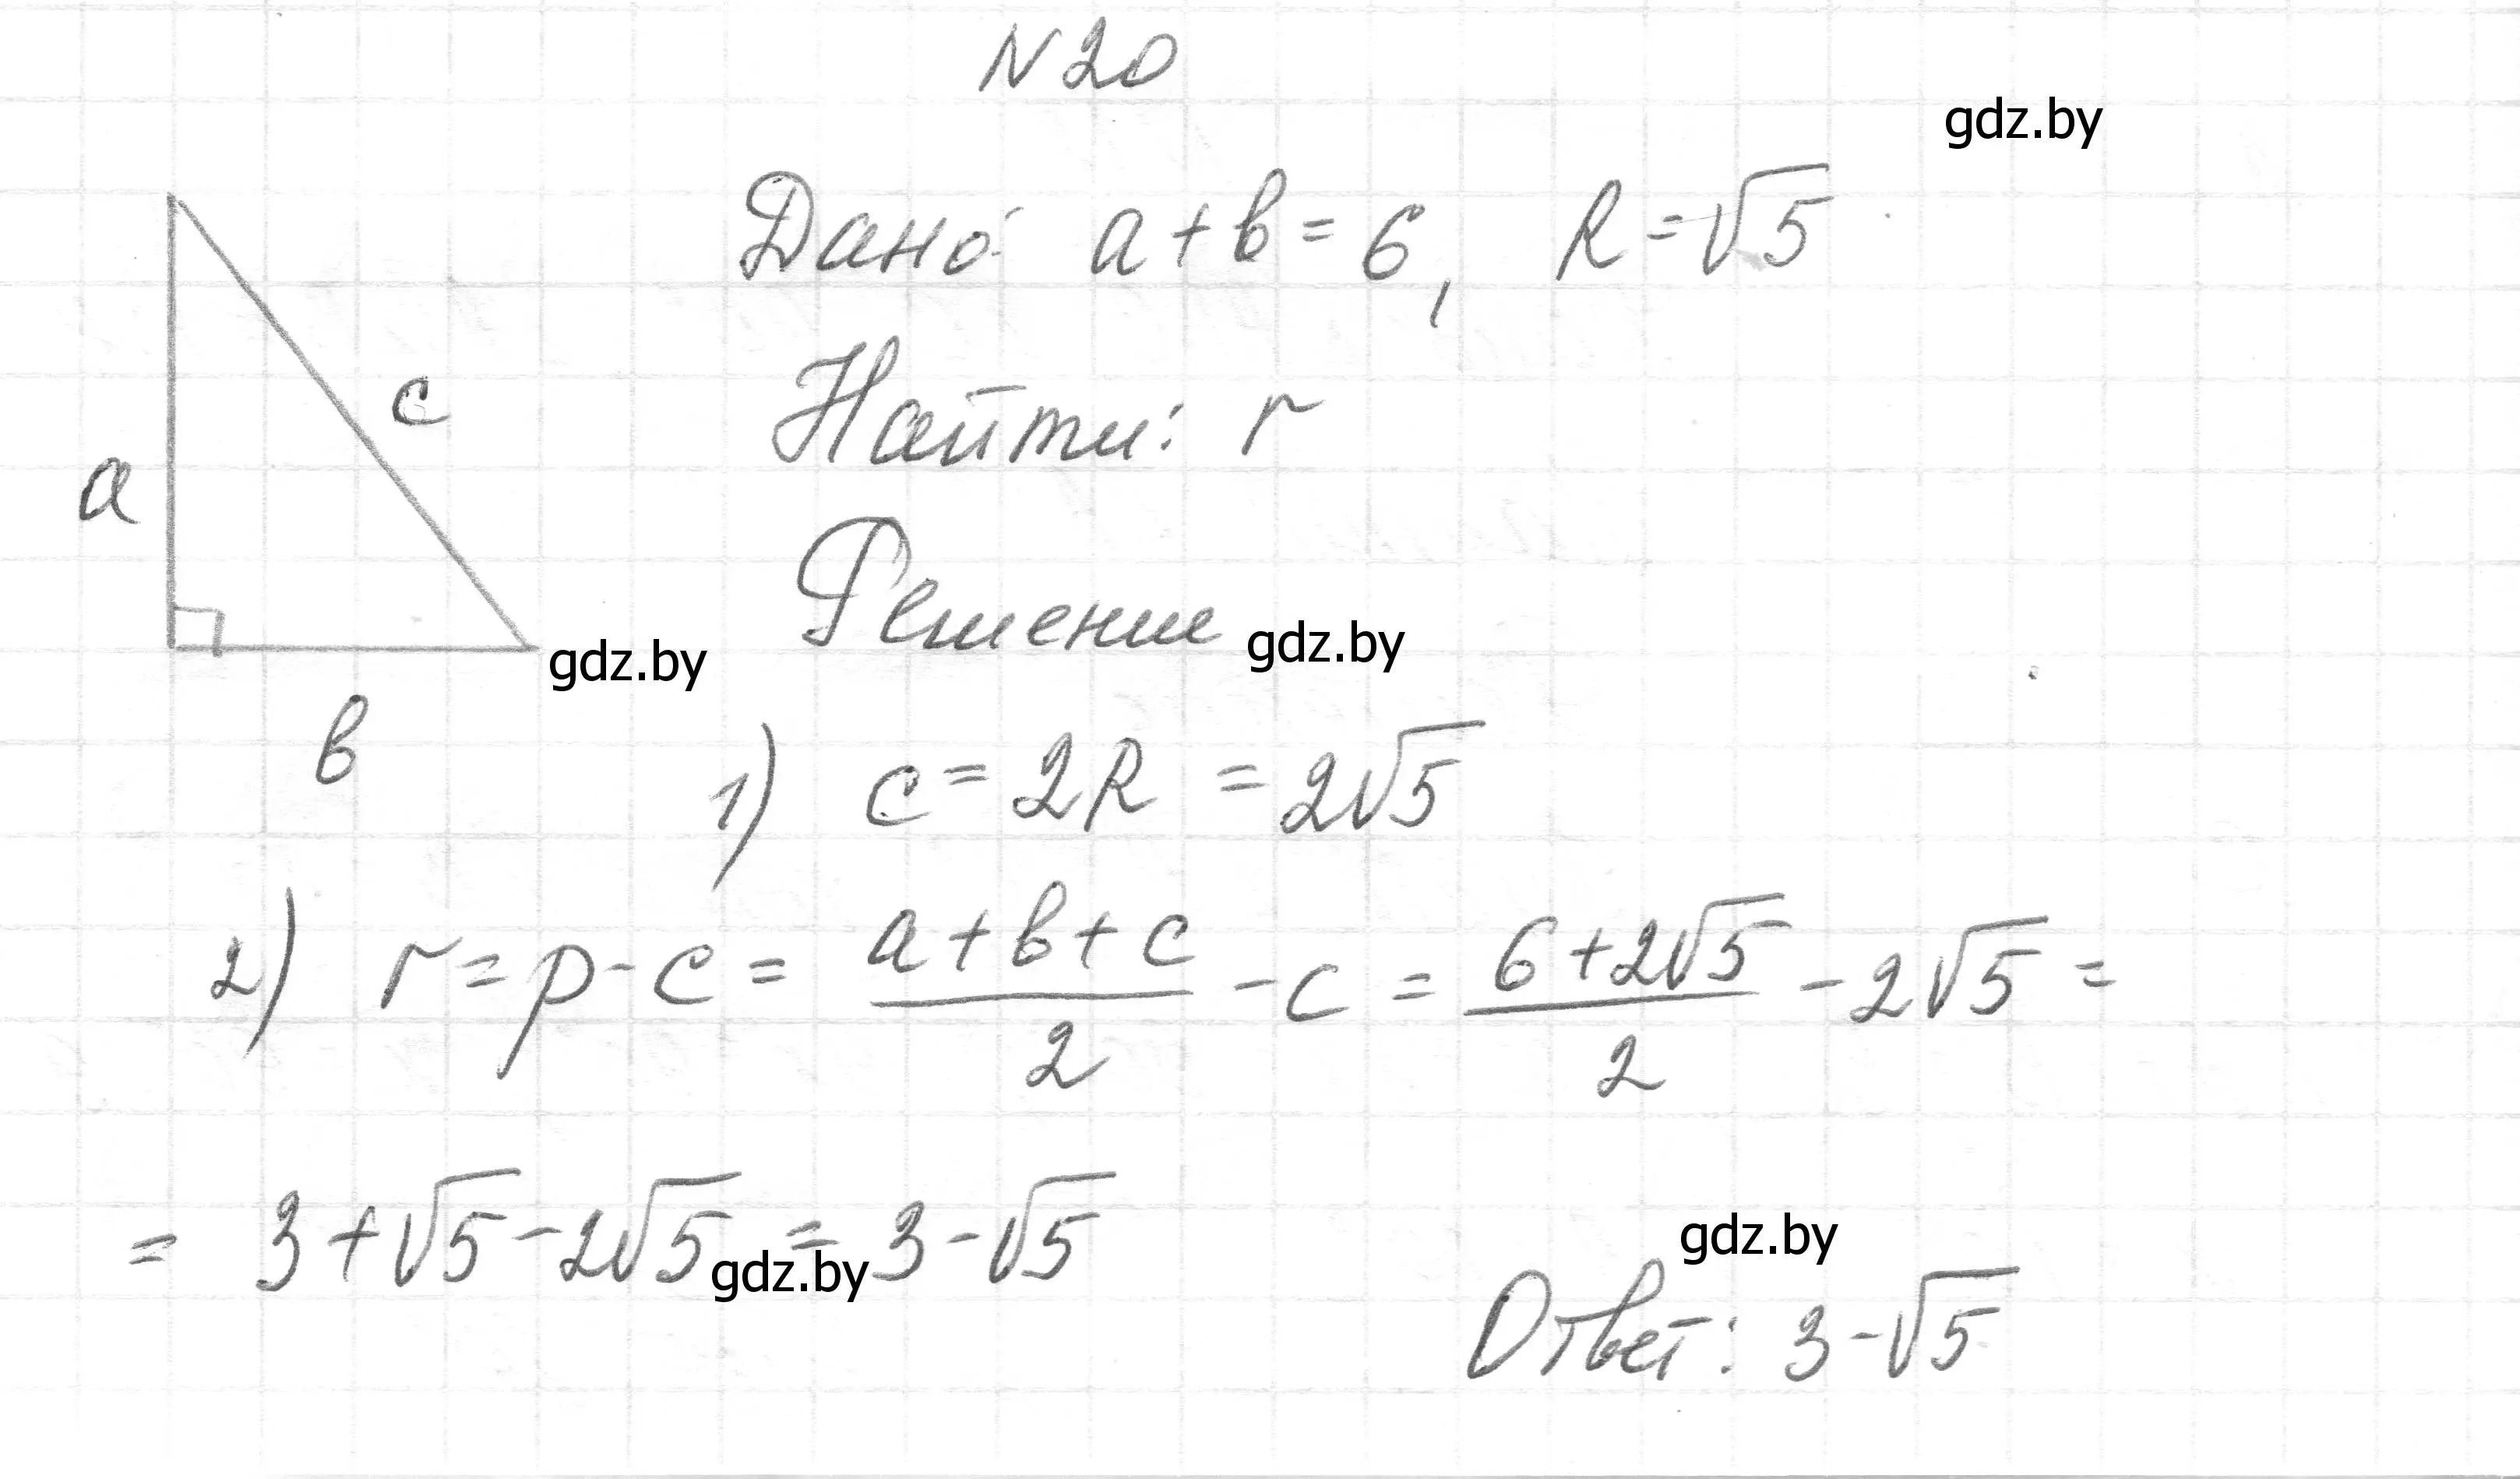 N 20
gdz.by
Дано: a + b = 6, R = √5
c
Найти: r
a
Решение gdz.by
gdz.by
b
1) c = 2R = 2√5
2) r = p - c = (a + b + c)/2 - c = (6 + 2√5)/2 - 2√5 =
= 3 + √5 - 2√5 = 3 - √5
gdz.by
gdz.by
Ответ: 3 - √5